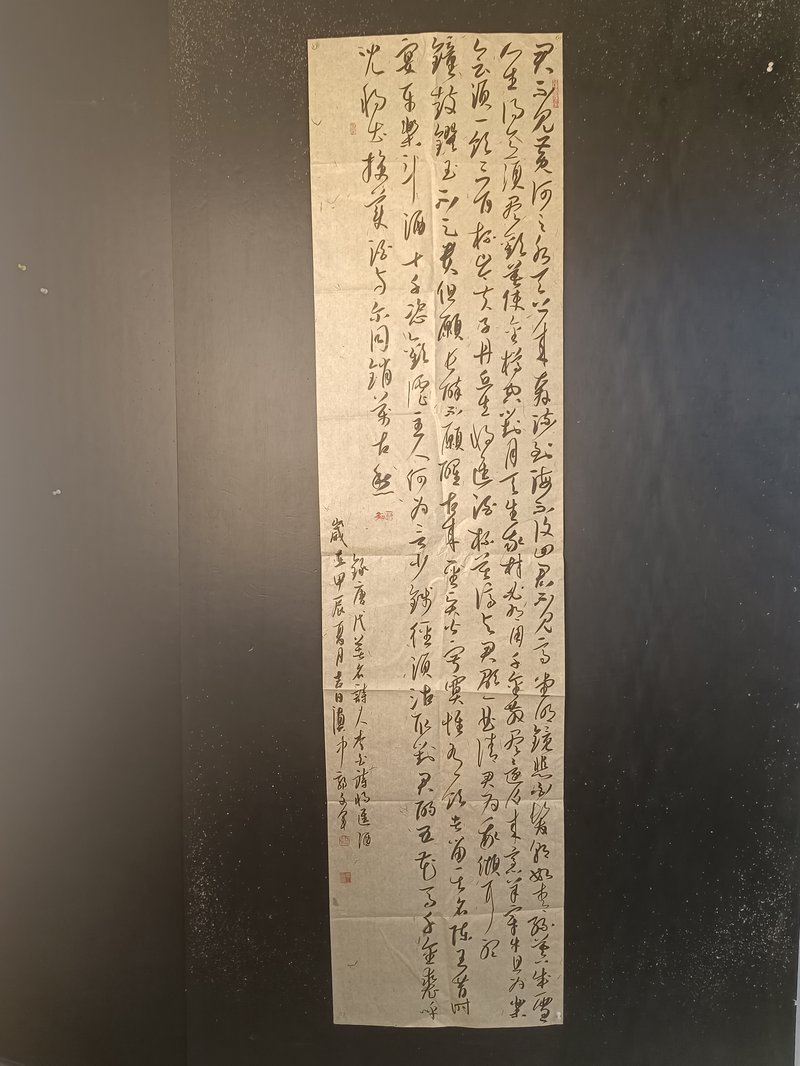 君不見黃河之水天上來奔流到海不復回君不見高堂明鏡悲白髮朝如青絲暮成雪
人生得意須盡歡莫使金樽空對月天生我材必有用千金散盡還復來烹羊宰牛且為樂
會須一飲三百杯岑夫子丹丘生將進酒杯莫停與君歌一曲請君為我傾耳聽
鐘鼓饌玉不足貴但願長醉不願醒古來聖賢皆寂寞惟有飲者留其名陳王昔時
宴平樂斗酒十千恣歡謔主人何為言少錢徑須沽取對君酌五花馬千金裘呼
兒將出換美酒與爾同銷萬古愁
錄唐代著名詩人李白詩將進酒
歲在甲辰夏月吉日滇中郭文軍